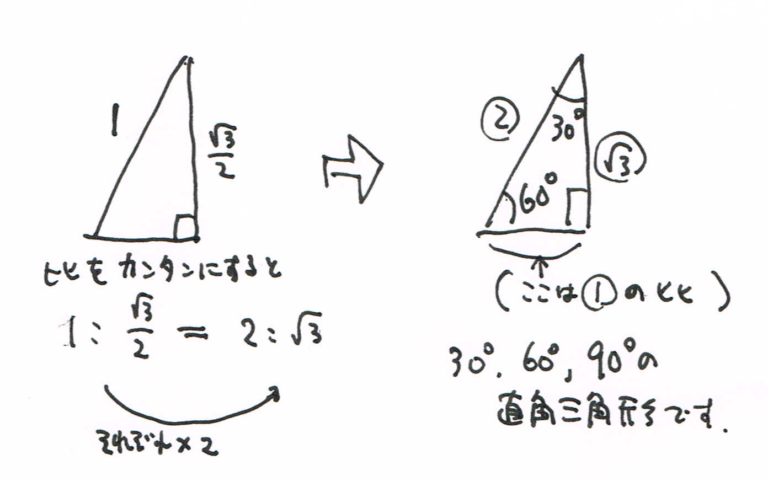 1
√3/2
比をカンタンにすると
1 : √3/2 = 2 : √3
それぞれ×2
②
30°
√3
60°
(ここは①の比)
30°. 60°, 90°の
直角三角形です.